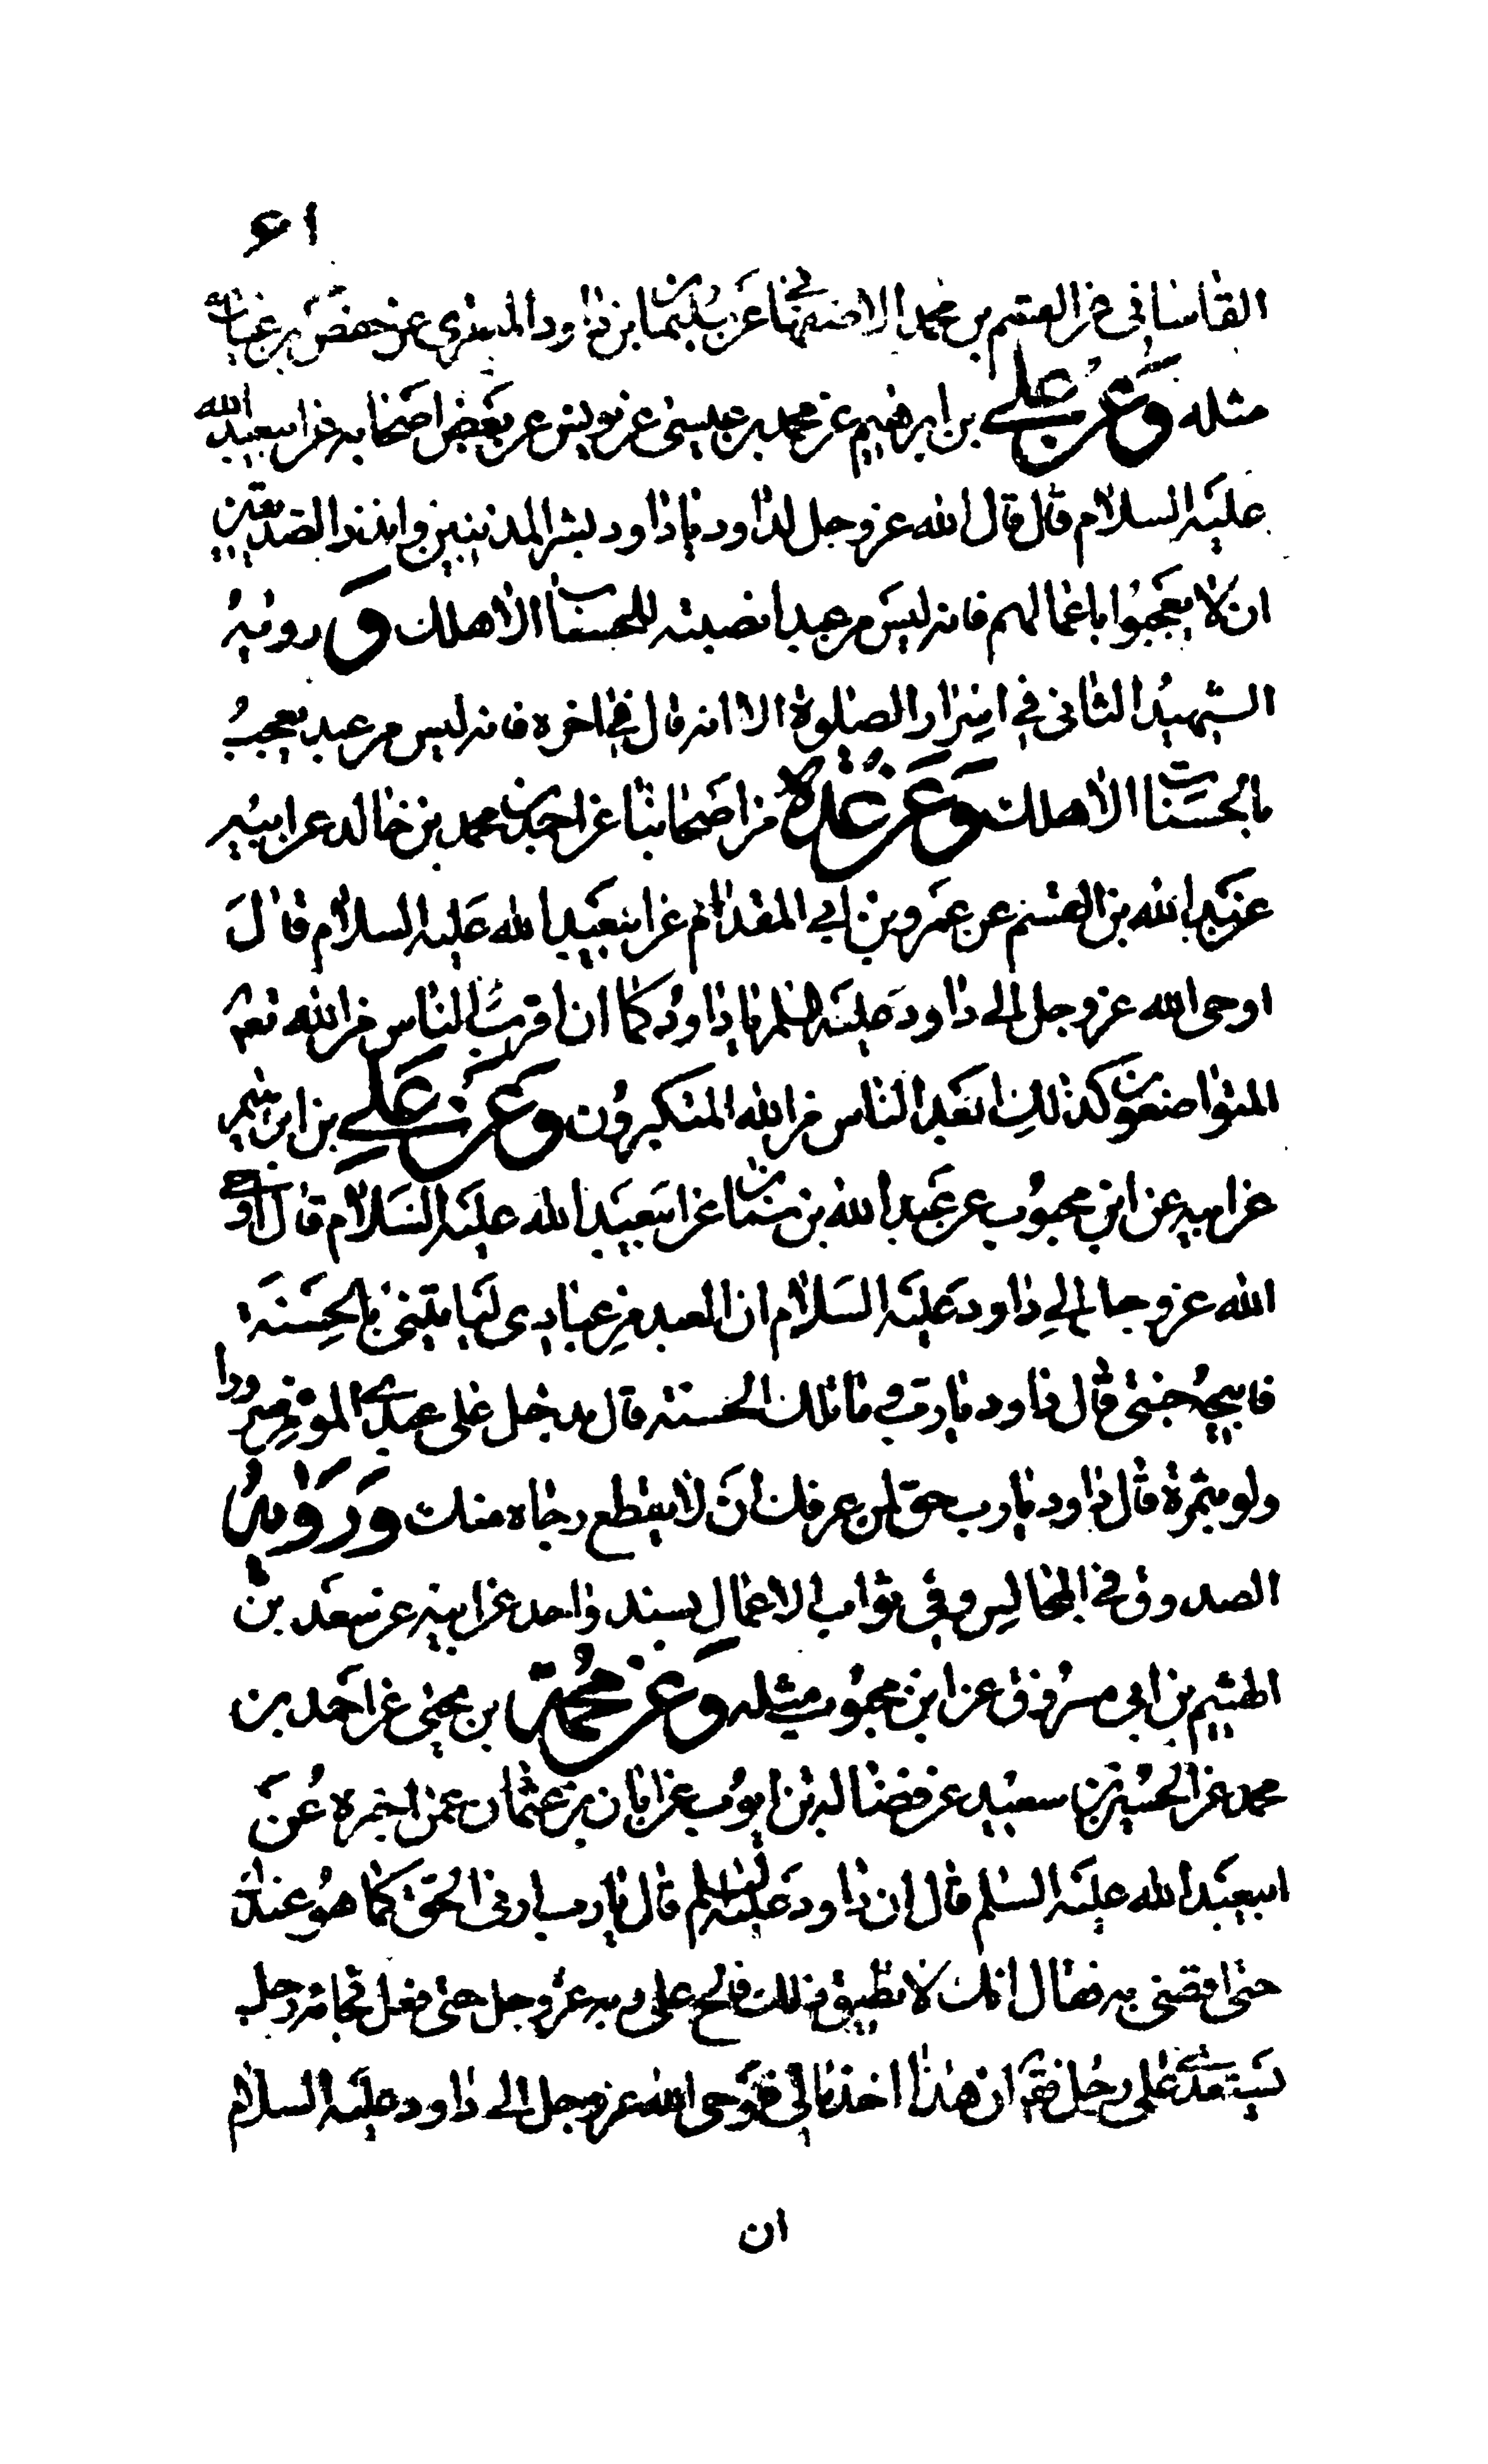 ٤١
القاساني عن القسم بن محمد الاصفهاني عن سليمان بن داود المنقري عن حفص بن غياث
مثله وعن علي بن ابرهيم عن محمد بن عيسى عن يونس عن بعض اصحابه عن ابيعبد الله
عليه السلام قال قال الله عزوجل لداود يا داود بشر المذنبين وانذر الصديقين
ان لا يعجبوا باعمالهم فانه ليس من عبد انصبته للحساب الا هلك و رويه
الشهيد الثاني في اسرار الصلوة الا انه قال في اخره فانه ليس من عبد يعجب
بالحسنات الا هلك وعن عدة من اصحابنا عن احمد بن محمد بن خالد عن ابيه
عن عبد الله بن القسم عن عمرو بن ابي المقدام عن ابيعبد الله عليه السلام قال
اوحى الله عزوجل الى داود عليه السلم يا داود كما ان اقرب الناس من الله تعم
المتواضعون كذلك ابعد الناس من الله المتكبرون وعن علي بن ابرهيم
عن ابيه عن ابن محبوب عن عبد الله بن سنان عن ابيعبد الله عليه السلام قال اوحى
الله عزوجل الى داود عليه السلام ان العبد من عبادي ليأتيني بالحسنة
فابيحه جنتي قال داود يا رب وما تلك الحسنة قال يدخل على عبدي المؤمن سرورا
ولو بتمرة قال داود يا رب حق لمن عرفك ان لا يقطع رجاه منك ورويه
الصدوق في المجالس وفي ثواب الاعمال بسند واحد عن ابيه عن سعد بن
الهيثم بن ابي مسروق عن ابن محبوب مثله وعن محمد بن يحيى عن احمد بن
محمد عن الحسين بن سعيد عن فضالة بن ايوب عن ابان بن عثمان عمن اخبره عن
ابيعبد الله عليه السلم قال ان داود عليه السلم قال يا رب ارني الحق كما هو عندك
حتى اقضي به فقال انك لا تطيق ذلك فالح على ربه عزوجل حتى فعل فجائه رجل
يستعدي على رجل فقال ان هذا اخذ مالي فاوحى الله عزوجل الى داود عليه السلام
ان